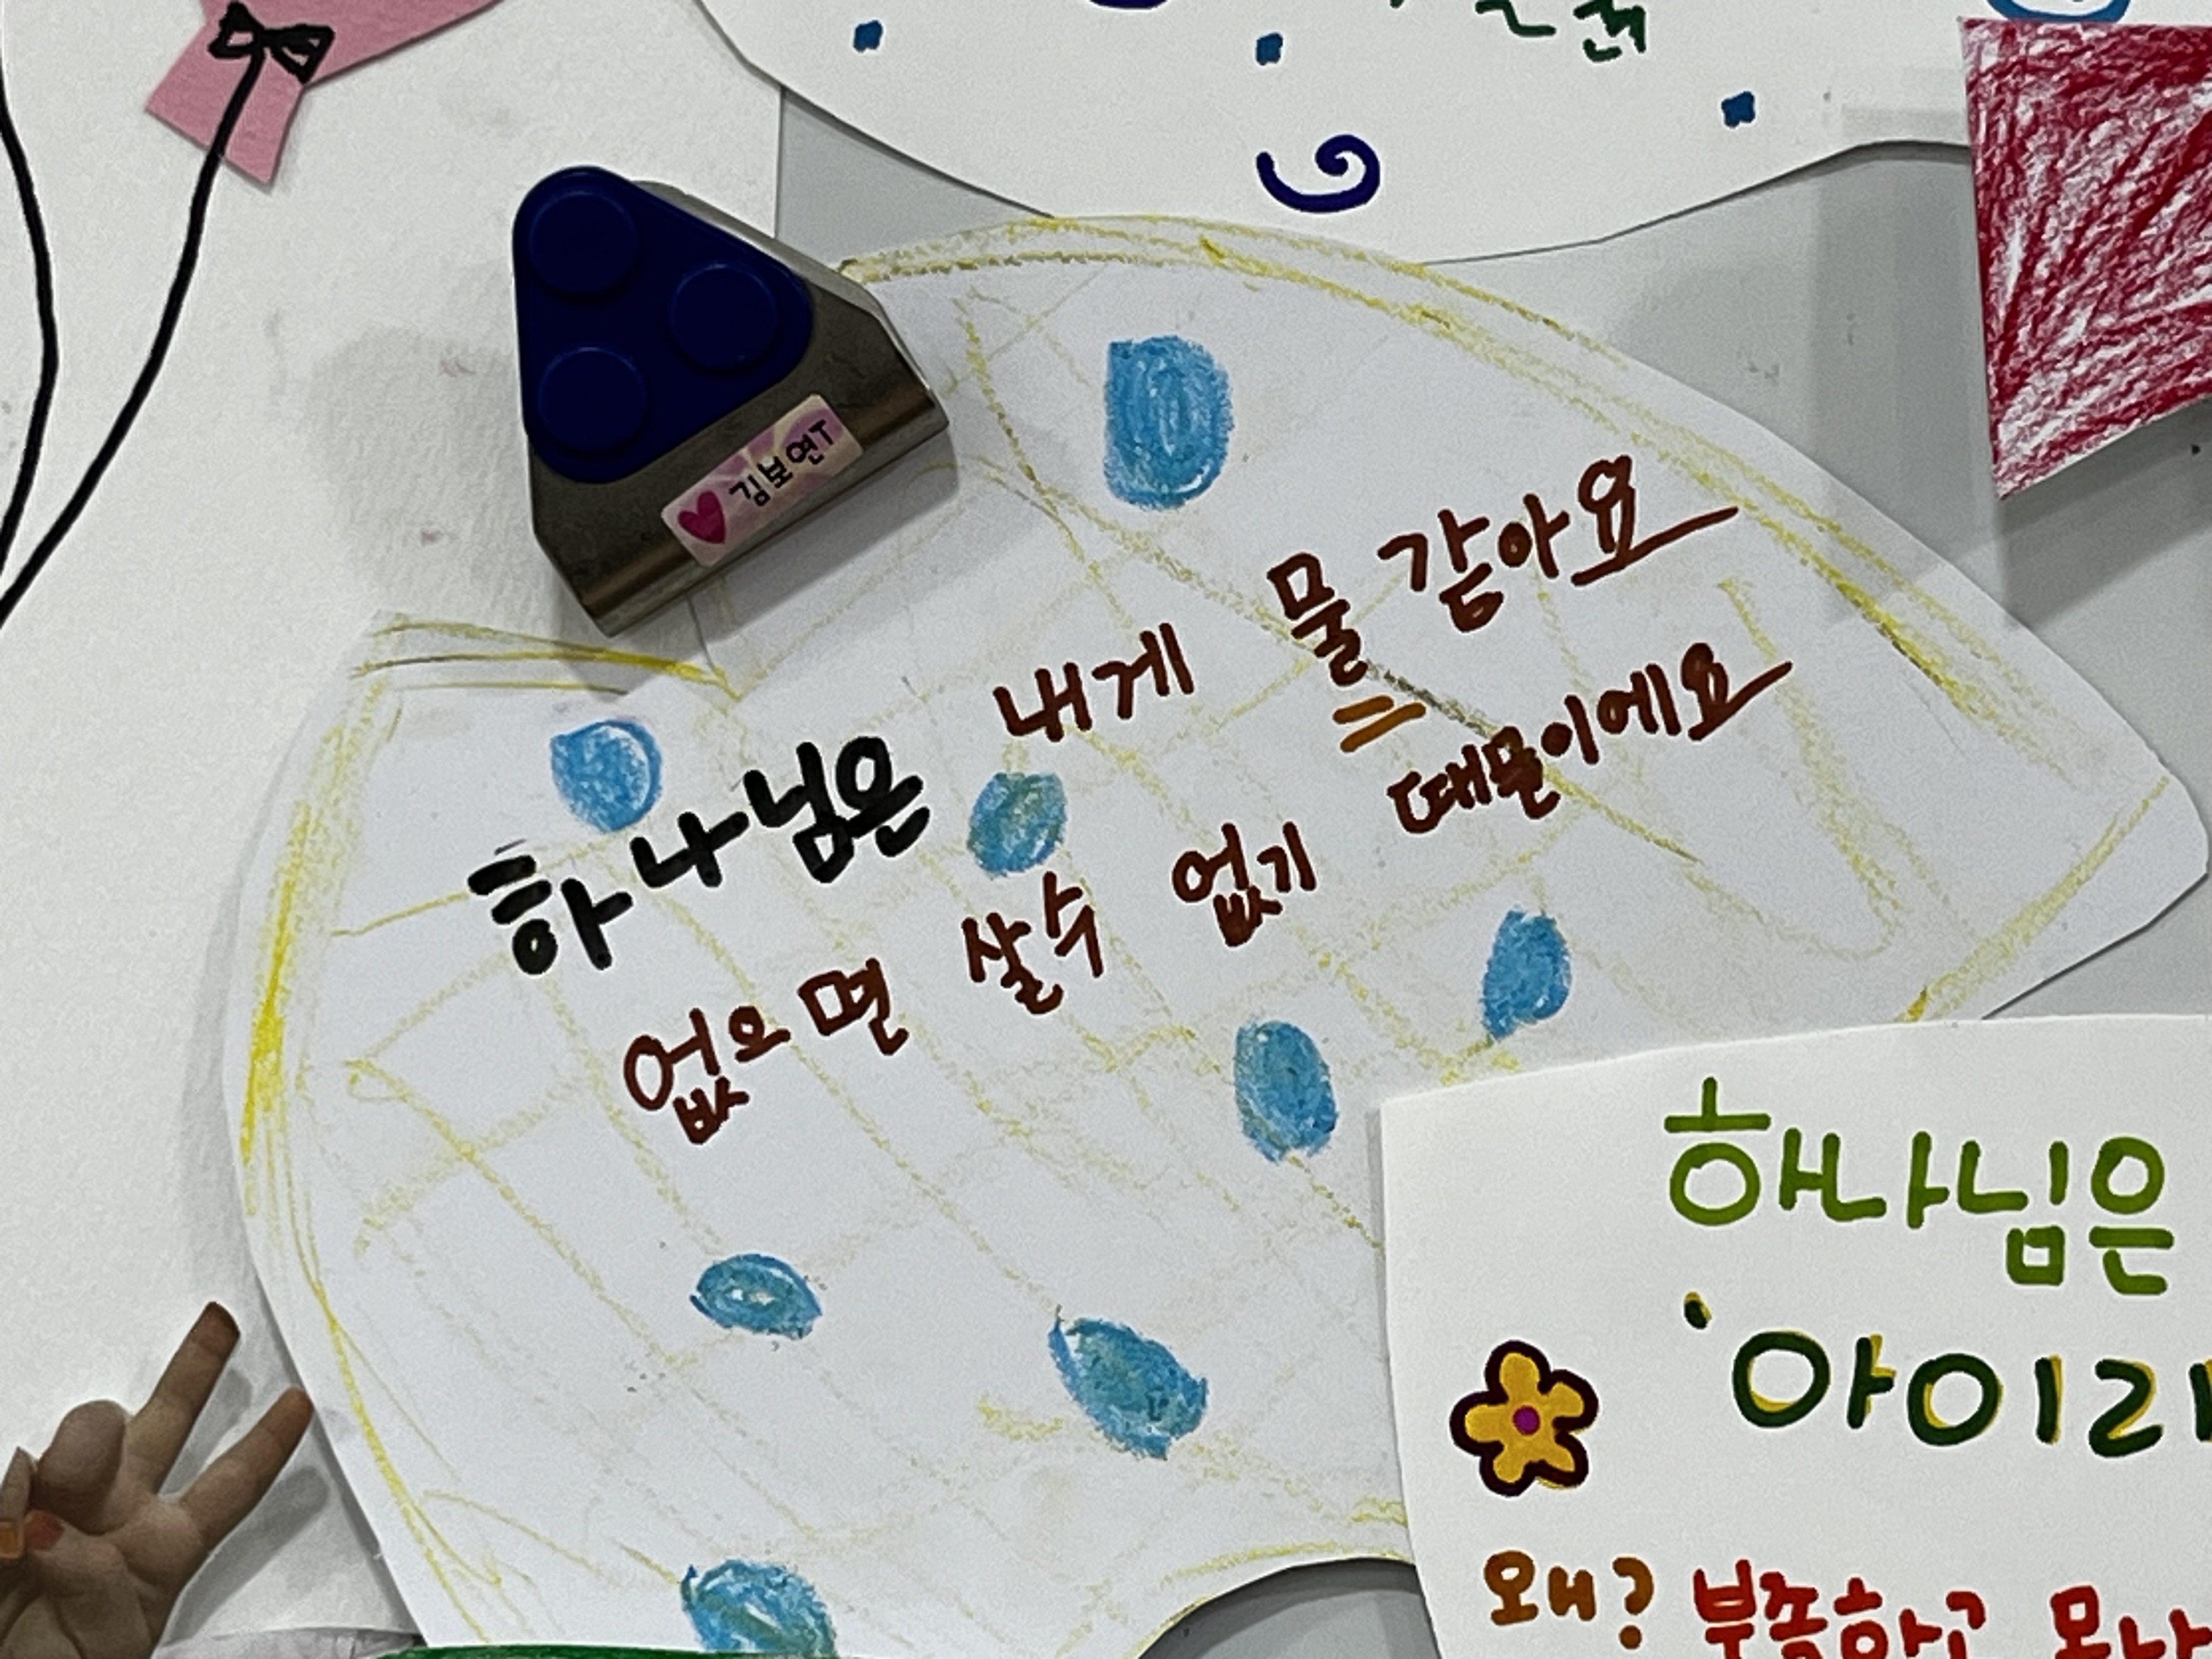 김보연T
하나님은 내게 물 같아요
없으면 살수 없기 때문이에요
해나님은
'아이라
왜? 부족하고 못나